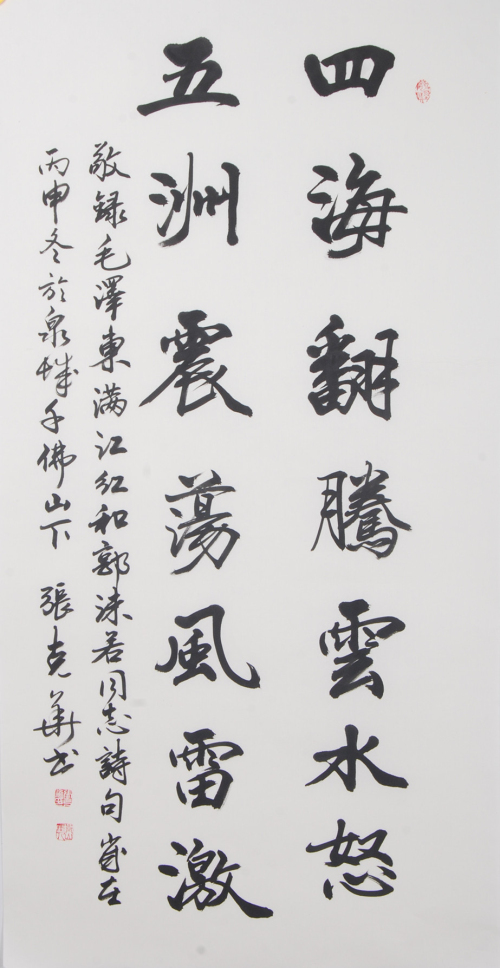 四海翻騰雲水怒
五洲震蕩風雷激
敬録毛澤東满江红和郭沫若同志詩句歲在
丙申冬於泉城千佛山下 張克華书